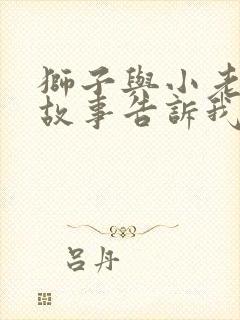 獅子與小老
故事告訴我
呂丹